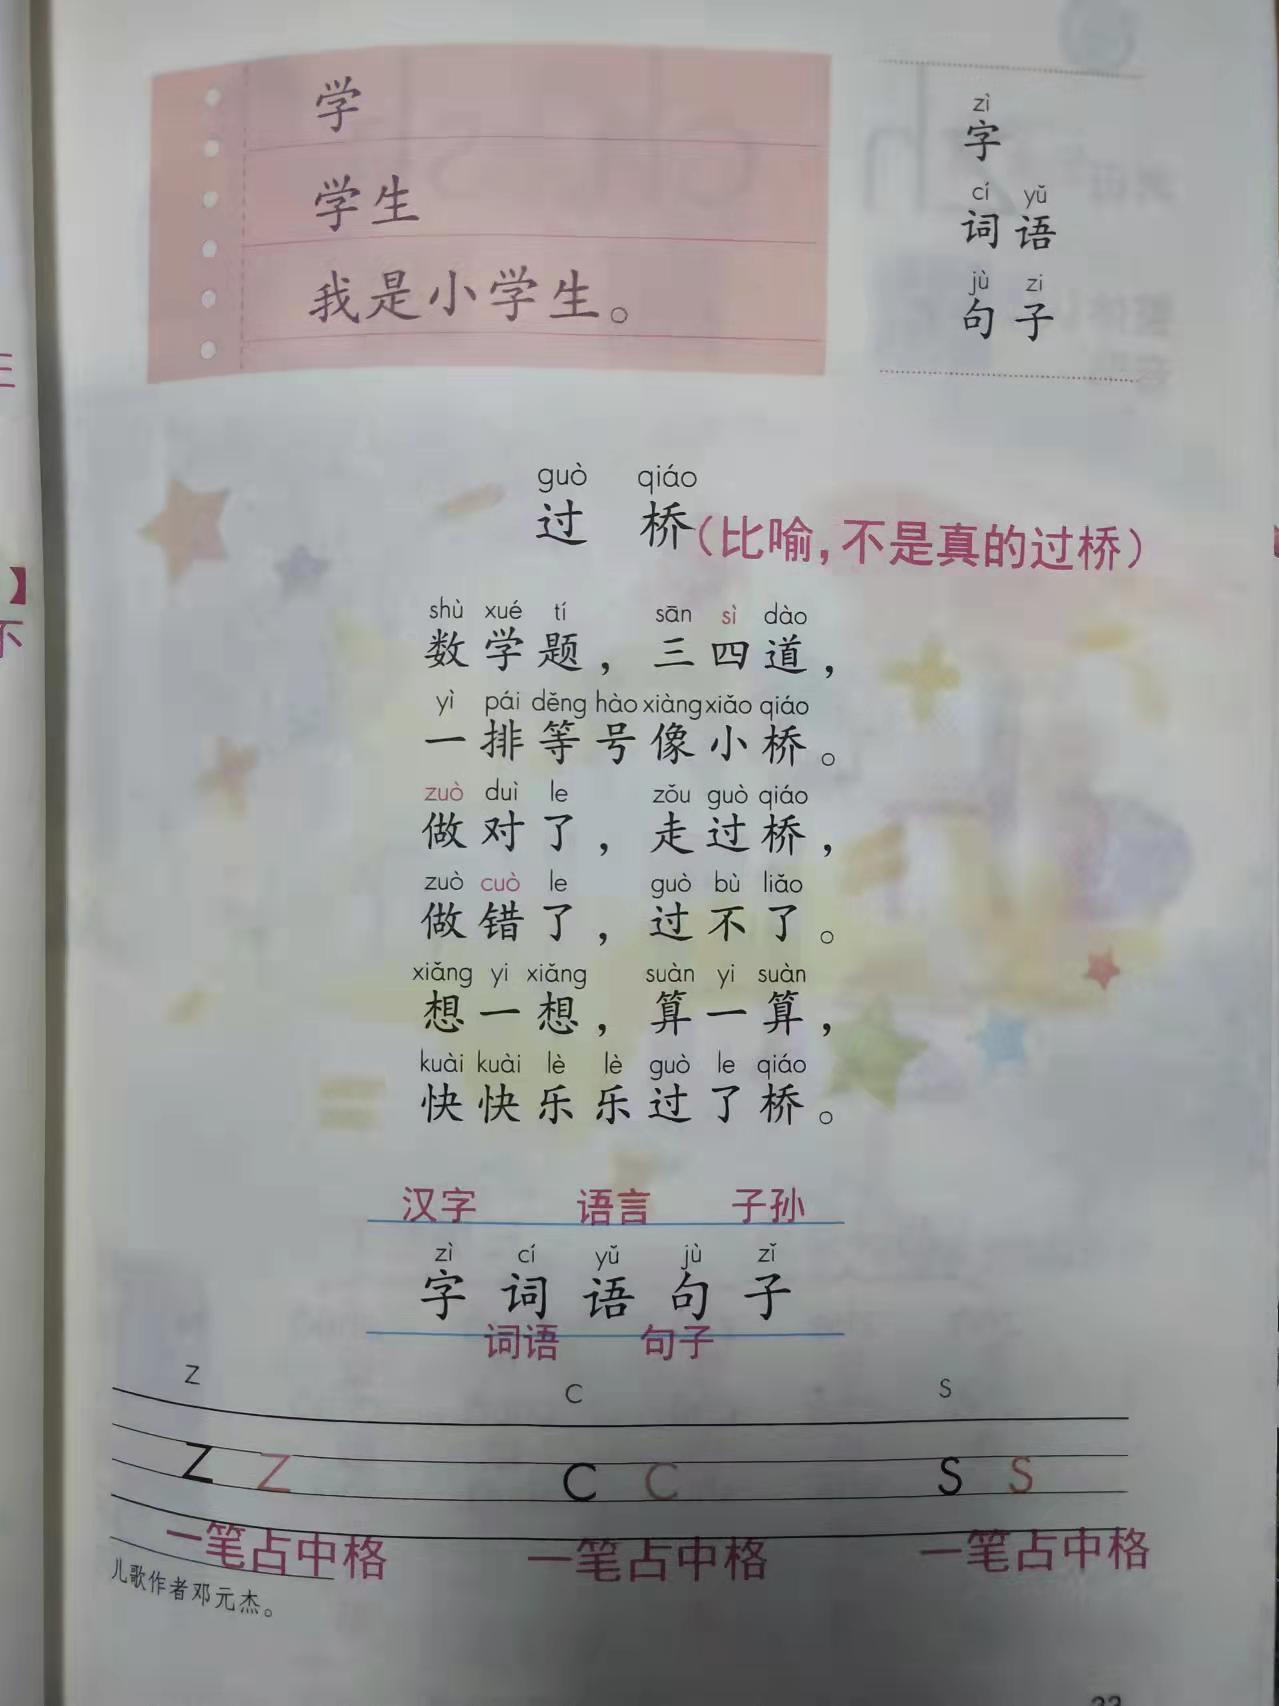 学
学生
我是小学生。
zì
字
cí yǔ
词语
jù zi
句子
guò qiáo
过 桥(比喻,不是真的过桥)
shù xué tí sān sì dào
数学题,三四道,
yì pái děng hào xiàng xiǎo qiáo
一排等号像小桥。
zuò duì le zǒu guò qiáo
做对了,走过桥,
zuò cuò le guò bù liǎo
做错了,过不了。
xiǎng yi xiǎng suàn yi suàn
想一想,算一算,
kuài kuài lè lè guò le qiáo
快快乐乐过了桥。
汉字 语言 子孙
zì cí yǔ jù zǐ
字 词 语 句 子
词语 句子
z c s
z z c c s s
一笔占中格 一笔占中格 一笔占中格
儿歌作者邓元杰。